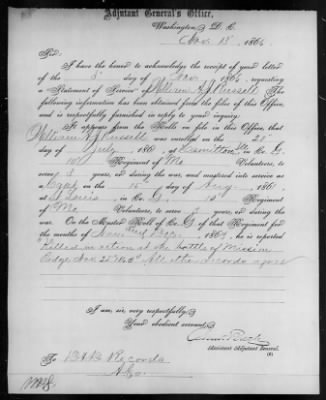 Adjutant General's Office,
Washington, D. C.
Nov. 18", 1865
Sir:
I have the honor to acknowledge the receipt of your letter
of the 8" day of Nov 1865, requesting
a Statement of Service of William A. J. Russell. The
following information has been obtained from the files of this Office,
and is respectfully furnished in reply to your inquiry:
It appears from the Rolls on file in this Office, that
William A. J. Russell was enrolled on the
day of July 1861 at in Co. G.
Regiment of Mo Volunteers, to
serve 3 years, or during the war, and mustered into service as
a on the 15 day of Aug. 1861
at St Louis, in Co. G. Regiment
of Mo. Volunteers, to serve 3 years, or during the war.
On the Muster Roll of Co. G of that Regiment for
the months of , 1863, he is reported
"Killed in action at the battle of Mission
Ridge Nov 25" All other records agree
I am, sir, very respectfully,
Your obedient servant,
Assistant Adjutant General.
To Records